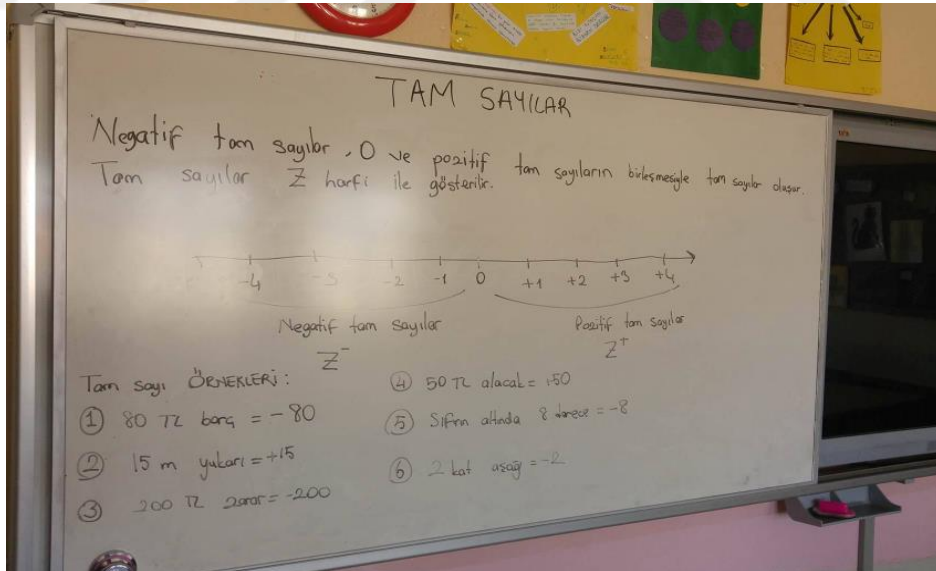 TAM SAYILAR
Negatif tam sayılar, 0 ve pozitif tam sayıların birleşmesiyle tam sayılar oluşur.
Tam sayılar Z harfi ile gösterilir.
-4 -3 -2 -1 0 +1 +2 +3 +4
Negatif tam sayılar Pozitif tam sayılar
Z⁻ Z⁺
Tam sayı ÖRNEKLERİ:
① 80 TL borç = -80
② 15 m yukarı = +15
③ 200 TL zarar = -200
④ 50 TL alacak = +50
⑤ Sıfırın altında 8 derece = -8
⑥ 2 kat aşağı = -2